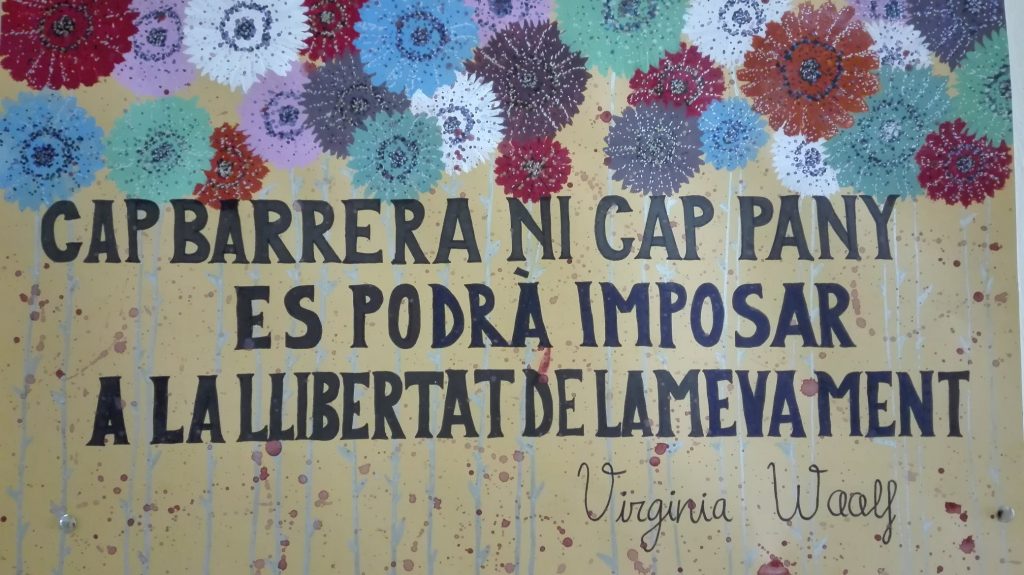 CAP BARRERA NI CAP PANY
ES PODRÀ IMPOSAR
A LA LLIBERTAT DE LA MEVA MENT
Virginia Woolf